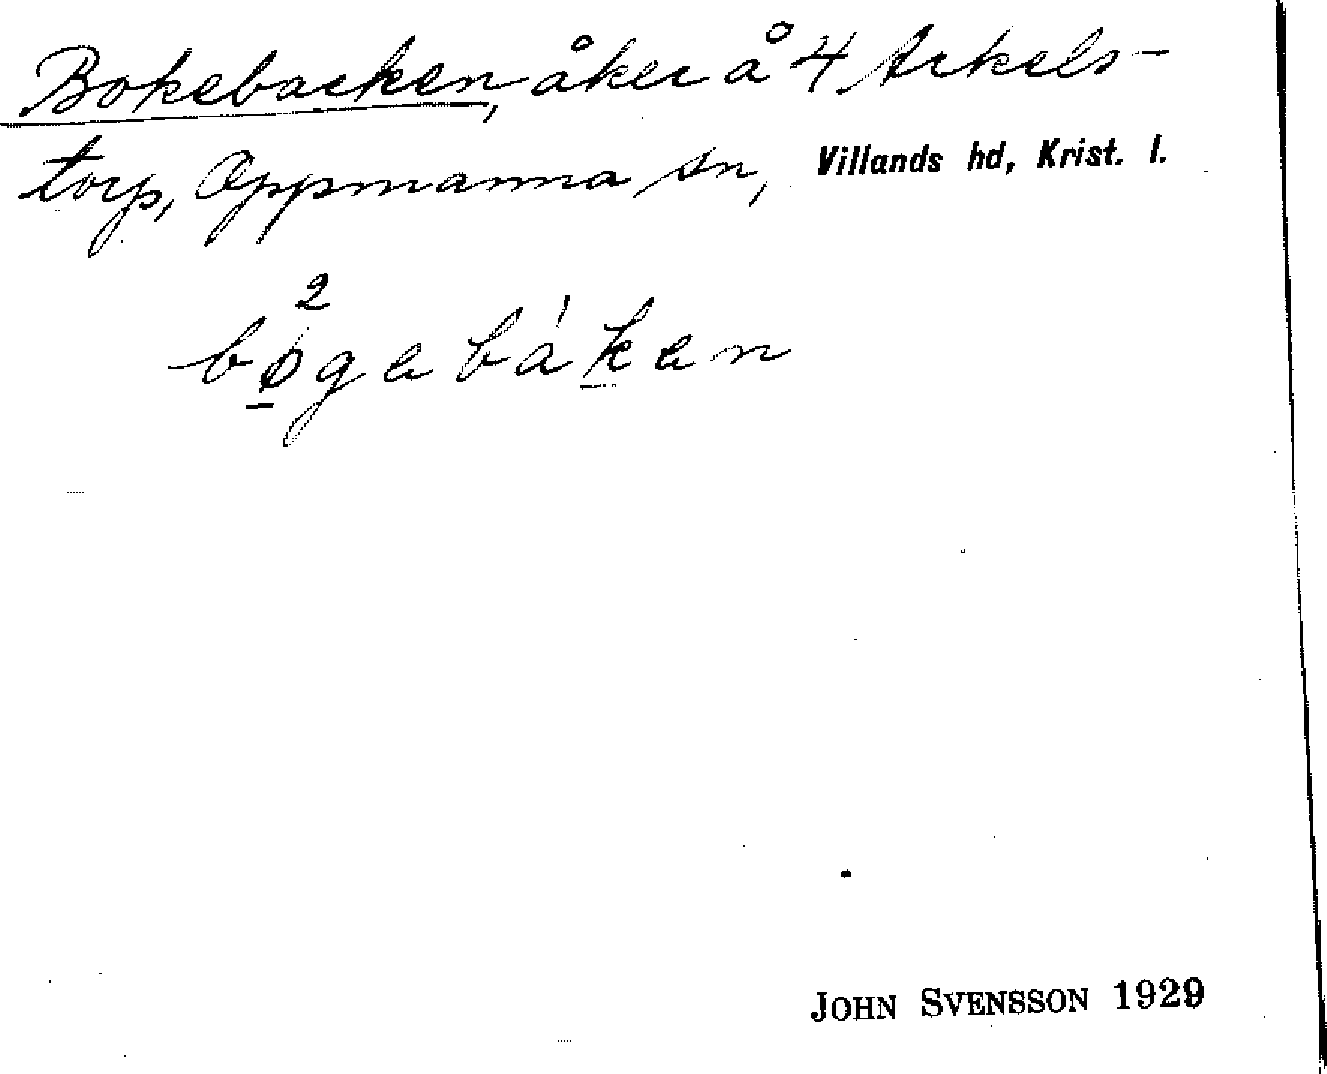 Bokebacken, åker å 4 Arkels-
torp, Oppmanna sn, Villands hd, Krist. l.
bø²gebáken
JOHN SVENSSON 1929